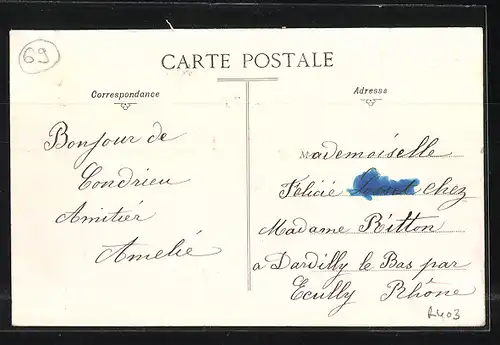 69
CARTE POSTALE
Correspondance
Adresse
Bonjour de
Condrieu
Amitiér
Amelié
Mademoiselle
Felicié chez
Madame Ritton
a Dardilly le Bas par
Ecully Rhône
R403